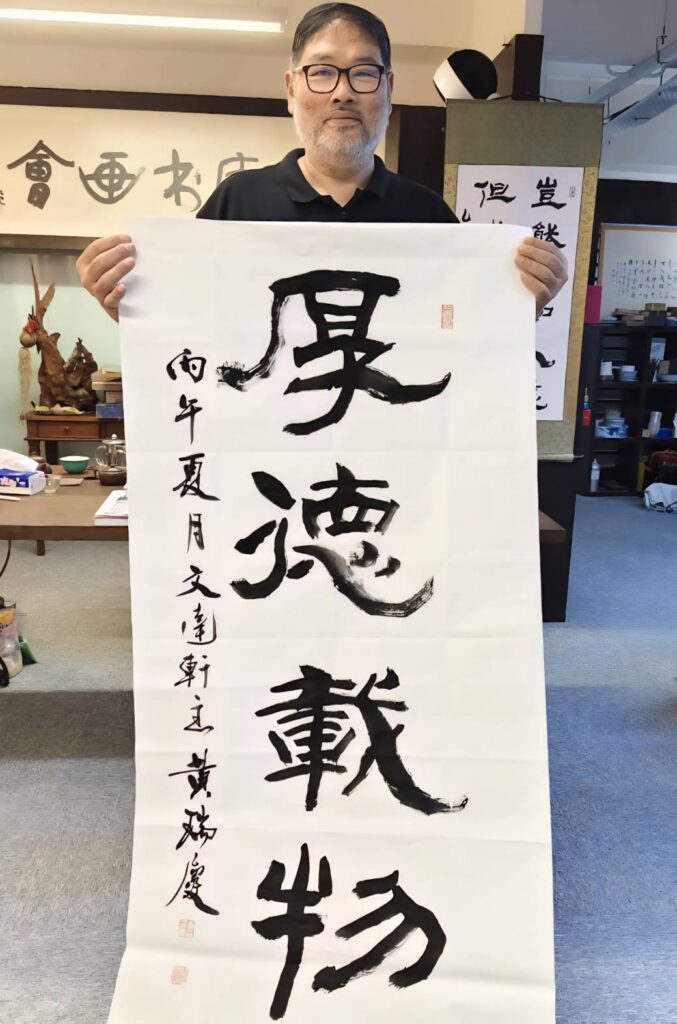 厚德載物
丙午夏月文達軒主黃瑞慶
书画會
豈能
但